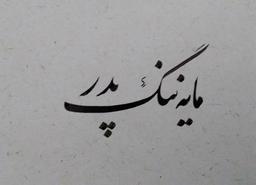 مایهٔ ننگ پدر